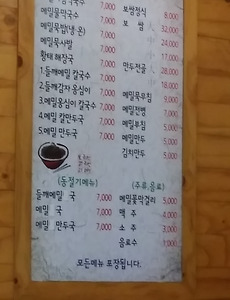 메밀물막국수 7,000
메밀묵밥(냉·온) 7,000
메밀묵사발 7,000
황태 해장국 7,000
1.들깨메밀 칼국수 7,000
2.들깨감자 옹심이 7,000
3.메밀옹심이 칼국수 7,000
4.메밀 칼만두국 7,000
5.메밀 만두국 7,000
(동절기메뉴)
들깨메밀 국 7,000
메밀 국 7,000
메밀 만두국 7,000
보쌈정식 8,000
보 쌈 32,000
24,000
만두전골
18,000
메밀묵무침 9,000
메밀전병 5,000
메밀부침 5,000
메밀만두 5,000
김치만두 5,000
(주류,음료)
메밀꽃막걸리 5,000
맥 주 4,000
소 주 3,000
음료수 1,000
모든메뉴 포장됩니다.